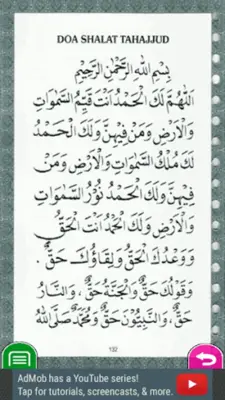 DOA SHALAT TAHAJJUD
بِسْمِ اللهِ الرَّحْمٰنِ الرَّحِيْمِ
اَللّٰهُمَّ لَكَ الْحَمْدُ اَنْتَ قَيِّمُ السَّمٰوَاتِ
وَالْاَرْضِ وَمَنْ فِيْهِنَّ وَلَكَ الْحَمْدُ
لَكَ مُلْكُ السَّمٰوَاتِ وَالْاَرْضِ وَمَنْ
فِيْهِنَّ وَلَكَ الْحَمْدُ نُوْرُ السَّمٰوَاتِ
وَالْاَرْضِ وَلَكَ الْحَمْدُ اَنْتَ الْحَقُّ
وَوَعْدُكَ الْحَقُّ وَلِقَاؤُكَ حَقٌّ .
وَقَوْلُكَ حَقٌّ وَالْجَنَّةُ حَقٌّ، وَالنَّارُ
حَقٌّ، وَالنَّبِيُّوْنَ حَقٌّ، وَمُحَمَّدٌ صَلَّى اللهُ
132
AdMob has a YouTube series!
Tap for tutorials, screencasts, & more.